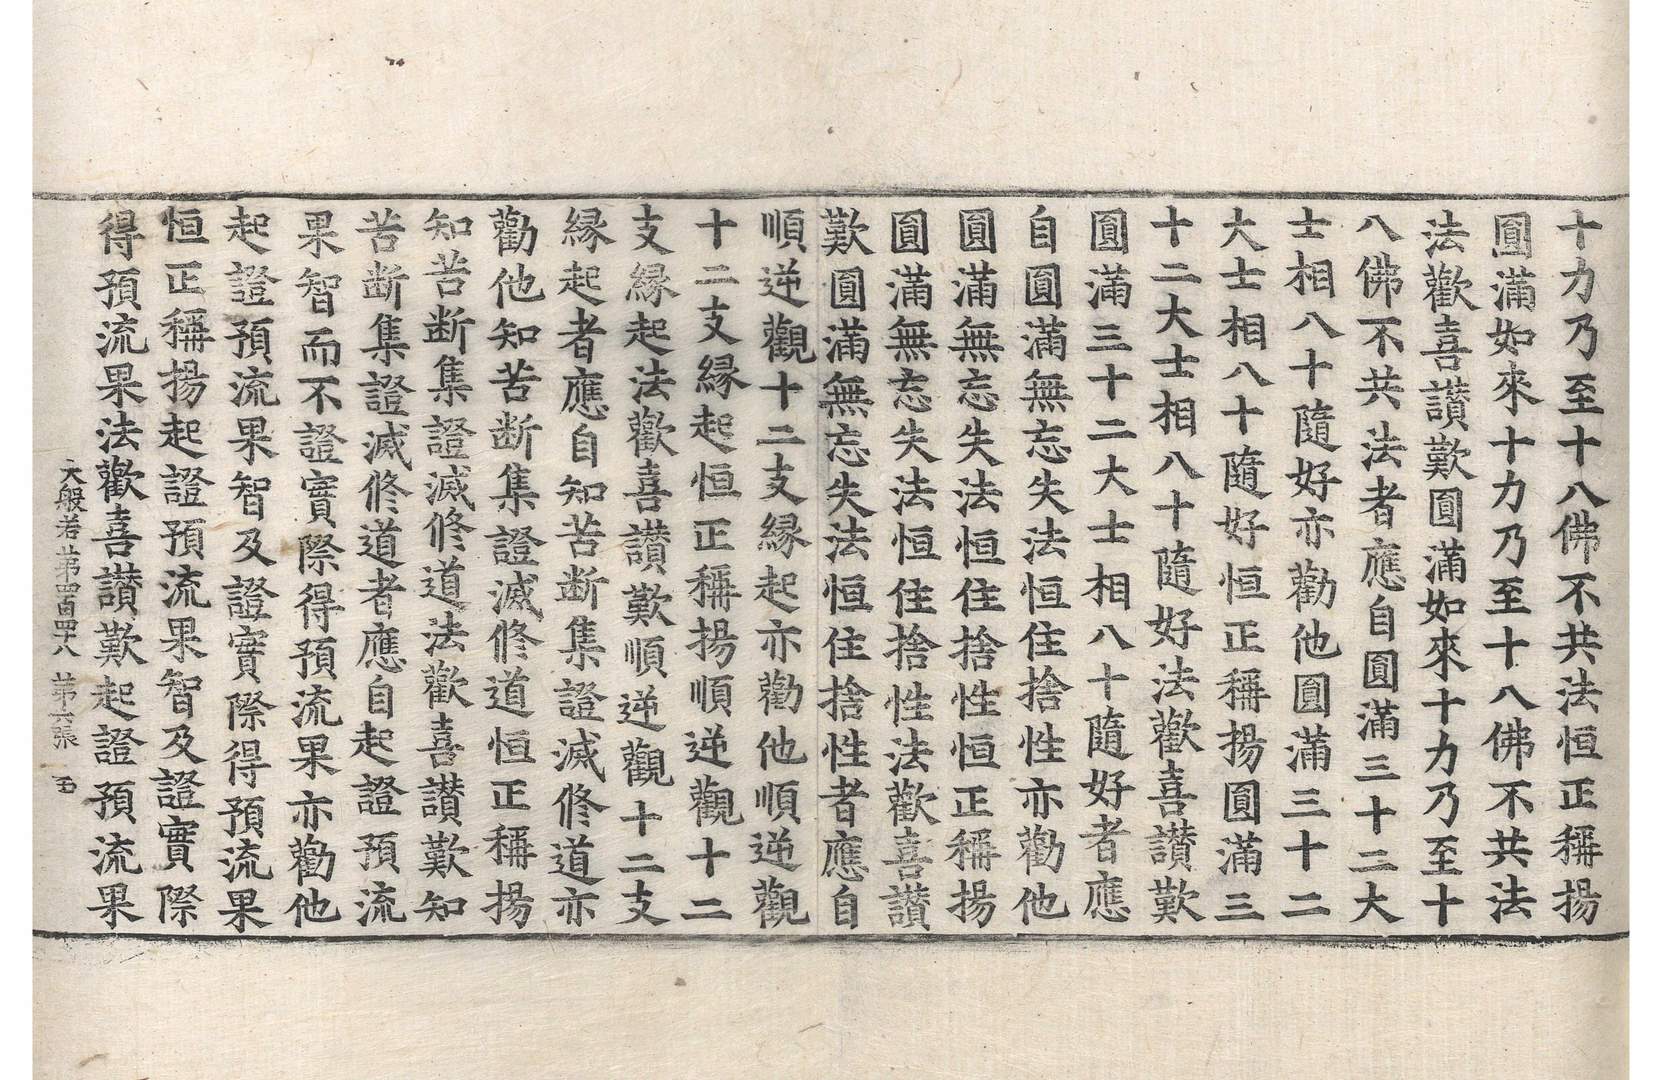 十力乃至十八佛不共法恒正稱揚
圓滿如來十力乃至十八佛不共法
法歡喜讚歎圓滿如來十力乃至十
八佛不共法者應自圓滿三十二大
士相八十隨好亦勸他圓滿三十二
大士相八十隨好恒正稱揚圓滿三
十二大士相八十隨好法歡喜讚歎
圓滿三十二大士相八十隨好者應
自圓滿無忘失法恒住捨性亦勸他
圓滿無忘失法恒住捨性恒正稱揚
圓滿無忘失法恒住捨性法歡喜讚
歎圓滿無忘失法恒住捨性者應自
順逆觀十二支縁起亦勸他順逆觀
十二支縁起恒正稱揚順逆觀十二
支縁起法歡喜讚歎順逆觀十二支
縁起者應自知苦断集證滅修道亦
勸他知苦断集證滅修道恒正稱揚
知苦断集證滅修道法歡喜讚歎知
苦断集證滅修道者應自起證預流
果智而不證實際得預流果亦勸他
起證預流果智及證實際得預流果
恒正稱揚起證預流果智及證實際
得預流果法歡喜讚歎起證預流果
大般若第四百四十八 第六張